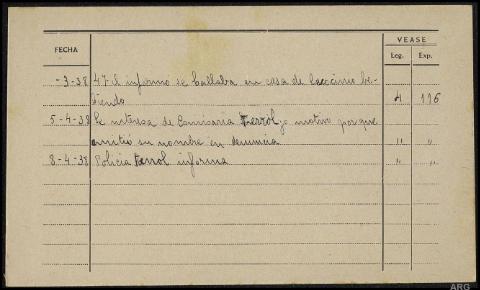 VEASE
FECHA Leg. Exp.
-3-38 47 el informo se hallaba en casa de be-
biendo 4 116
5-4-38 Se interesa de Comisaria Ferrol motivo por que
omitió su nombre en denuncia " "
8-4-38 Policia Ferrol informa " "
ARG